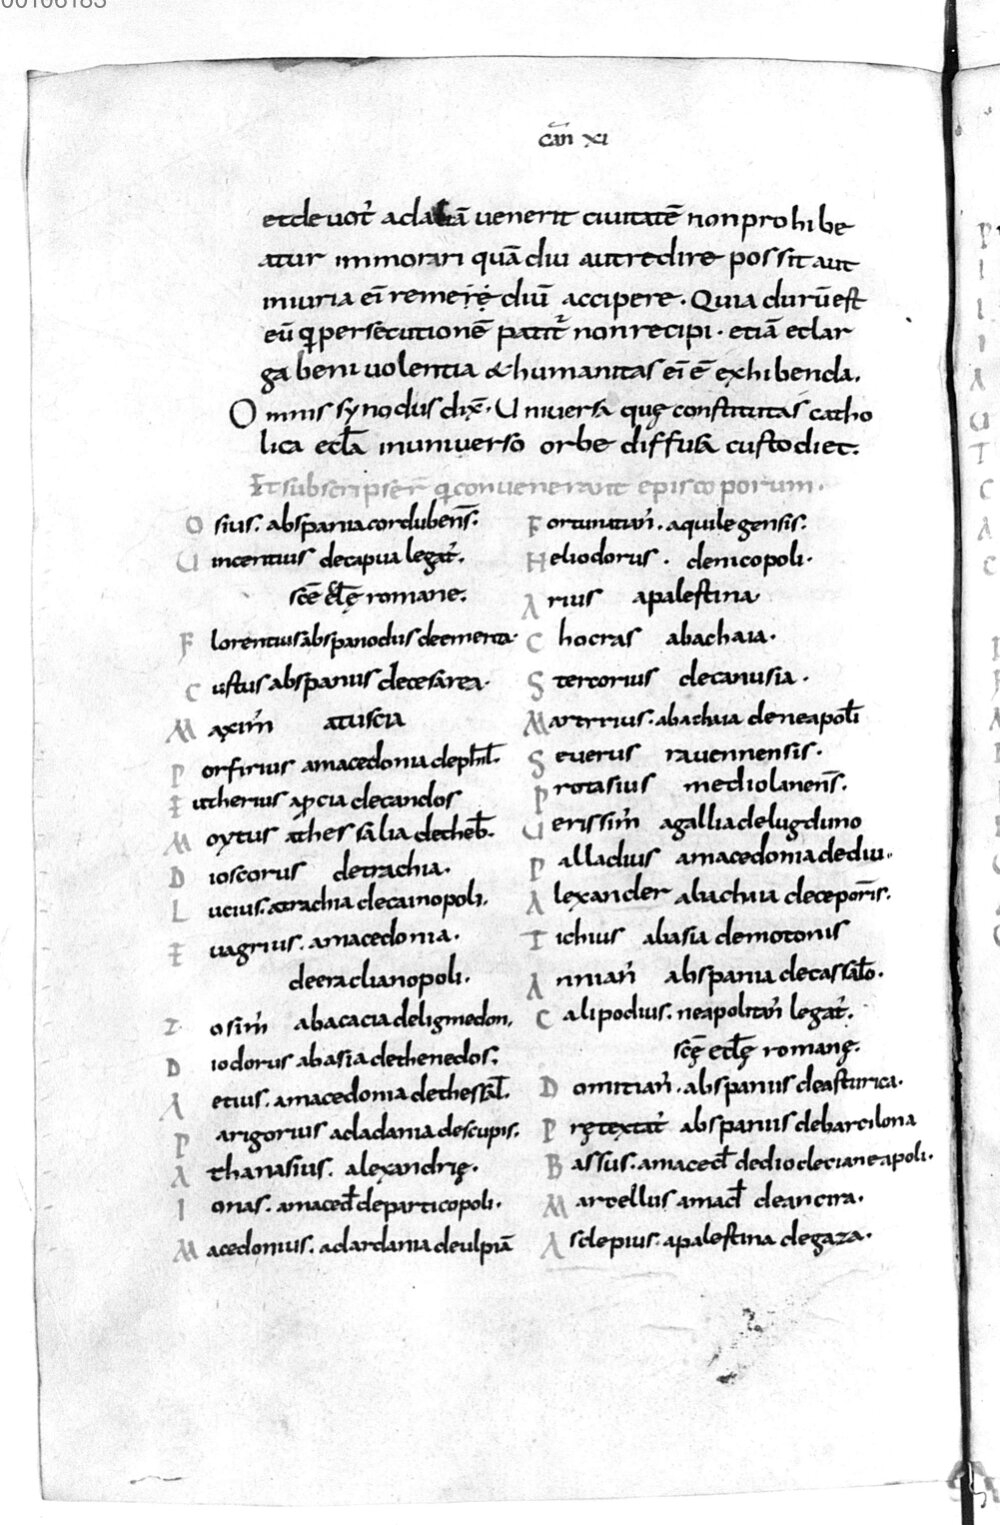 00106183
cañ xi
et devot̉ ad aliā venerit civitatē non prohibe
atur immorari quā diu aut redire possit aut
iniuria ei remedium accipere. Quia durū est
eū q̢ persecutionē patit̉ non recipi. etiā et lar
ga benivolentia & humanitas ei ē exhibenda.
Omnis synodus dix̄. Universa quę constituta s̄ catho
lica eccl̄a in universo orbe diffusa custodiet.
Et subscripser̄ q̢ convenerant episcoporum.
Osius. ab spania cordubens̄.
Uincentius de capua legat̉.
scē eccl̄ę romane.
Florentius ab spanodus de emerita.
Custus ab spanius de cesarea.
Maxim̉ a tuscia
Porfirius a macedonia de phil̄.
Eutherius a p̢cia de candos
Moytus a thessalia de theb̄.
Dioscorus de trachia.
Lucius. a trachia de cainopoli.
Evagrius. a macedonia.
de eraclianopoli.
Zosim̉ ab acacia de ligmedon.
Diodorus ab asia de thenedos.
Aetius. a macedonia de thessal̄.
Parigorius a dadania de scupis.
Athanasius. alexandrię.
Ionas. a maced̄ de particopoli.
Macedonius. a dardania de ulpiā
Fortunatian̉. aquilegensis.
Heliodorus. de nicopoli.
Arius a palestina
Chocras ab achaia.
Stercorius de canusia.
Martirius. ab achaia de neapol̄i
Severus ravennensis.
Protasius mediolanens̄.
Uerissim̉ a gallia de lugduno
Palladius a macedonia de diu.
Alexander ab achaia de ceporīs.
Tichius ab asia de motonis
Annian̉ ab spania de cassal̄o.
Calipodius. neapolitan̉ legat̉.
scę̄ eccl̄ę romanę.
Domitian̉. ab spaniis de asturica.
Prętextat̉ ab spaniis de barcilona
Bassus. a maced̄ de diocleciane apoli.
Marcellus a macd̄ de ancira.
Asclepius. a palestina de gaza.